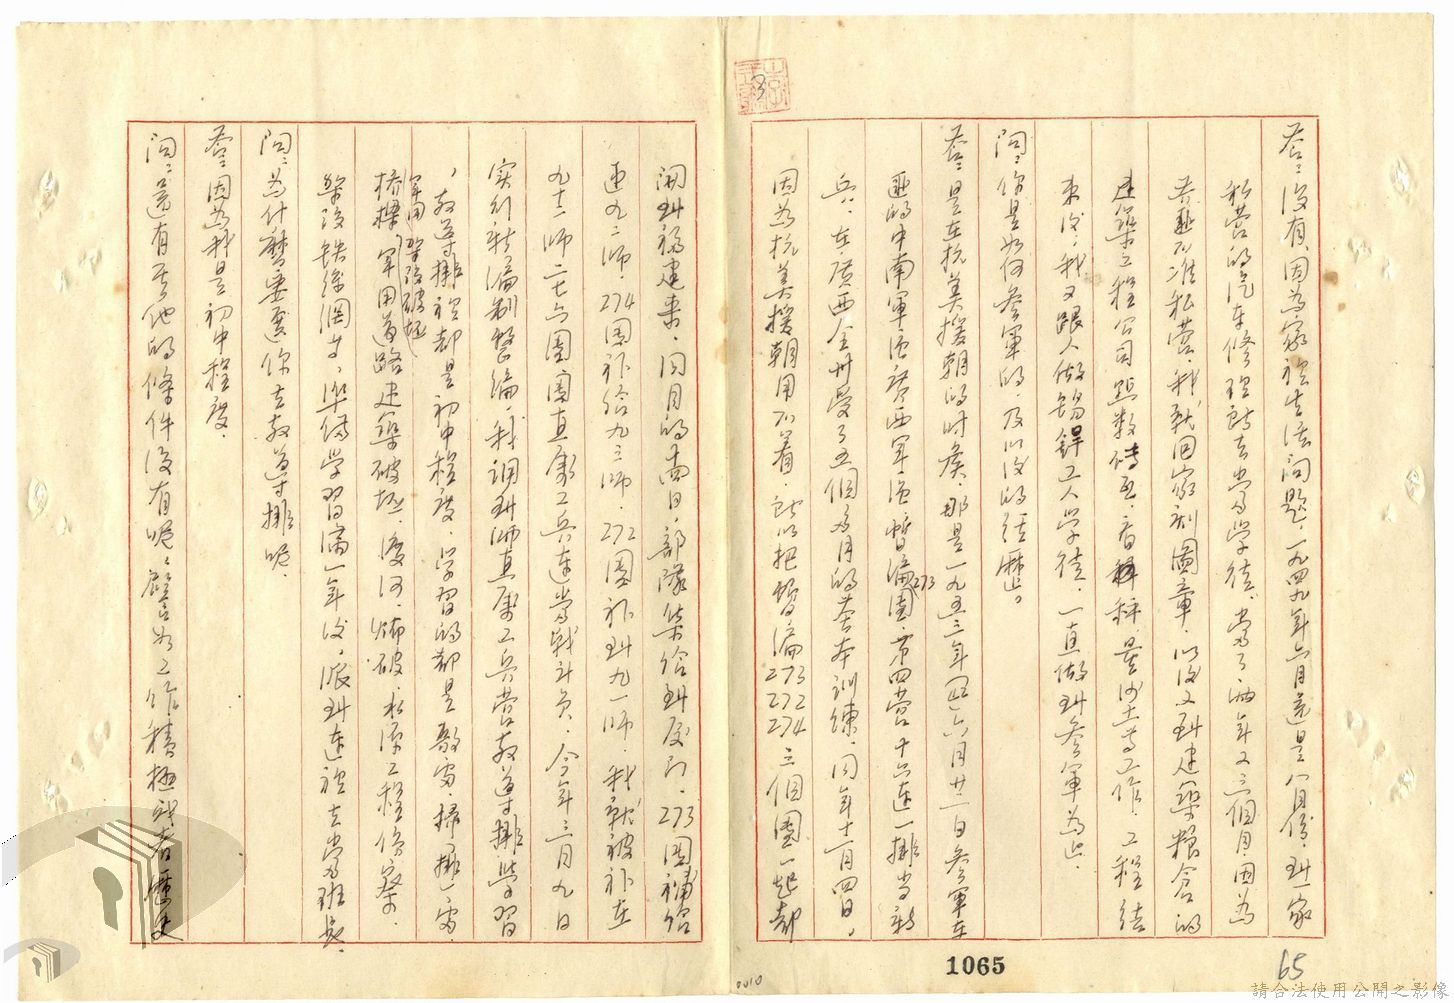 答:沒有,因為家裡生活問題,一九四九年六月還是八月份,到一家
私營的汽車修理部去當學徒,當了兩年又三個月,因為
共匪不准私營,我就回家刻圖章,以後又到建築糧倉的
建築工程公司點數磚瓦,看秤,量沙土等工作,工程結
束後,我又跟人做錫銲工人學徒,一直做到參軍為止。
問:你是如何參軍的,及以後的經歷。
答:是在抗美援朝的時候,那是一九五三年四六月廿二日參軍在
匪的中南軍區廣西軍區暫編273團,第四營十六連一排當新
兵,在廣西全州受了五個多月的基本訓練,同年十一月四日,
因為抗美援朝用不着,所以把暫編273 272 274三個團一起都
開到福建來,同月的 日,部隊集結到廈門,273團補給
連九二師,274團補給九三師,272團補到九一師,我就被補在
九十二師二七六團團直屬工兵連當戰斗員,今年三月九日
實行新編制整編,我調到師直屬工兵營教導排學習
,教導排裡都是初中程度,學習的都是敷雷,掃雷,
軍用架設破坯
橋樑,軍用道路建築破坯,渡河,爆破,水源工程偵察,
架設鉄絲網等,準備學習滿一年後,派到連裡去當班長,
問:為什麼要要你去教導排呢,
答:因為我是初中程度,
問:還有其他的條件沒有呢,譬如工作積極或者歷史
1065
65
0010
請合法使用公開之影像